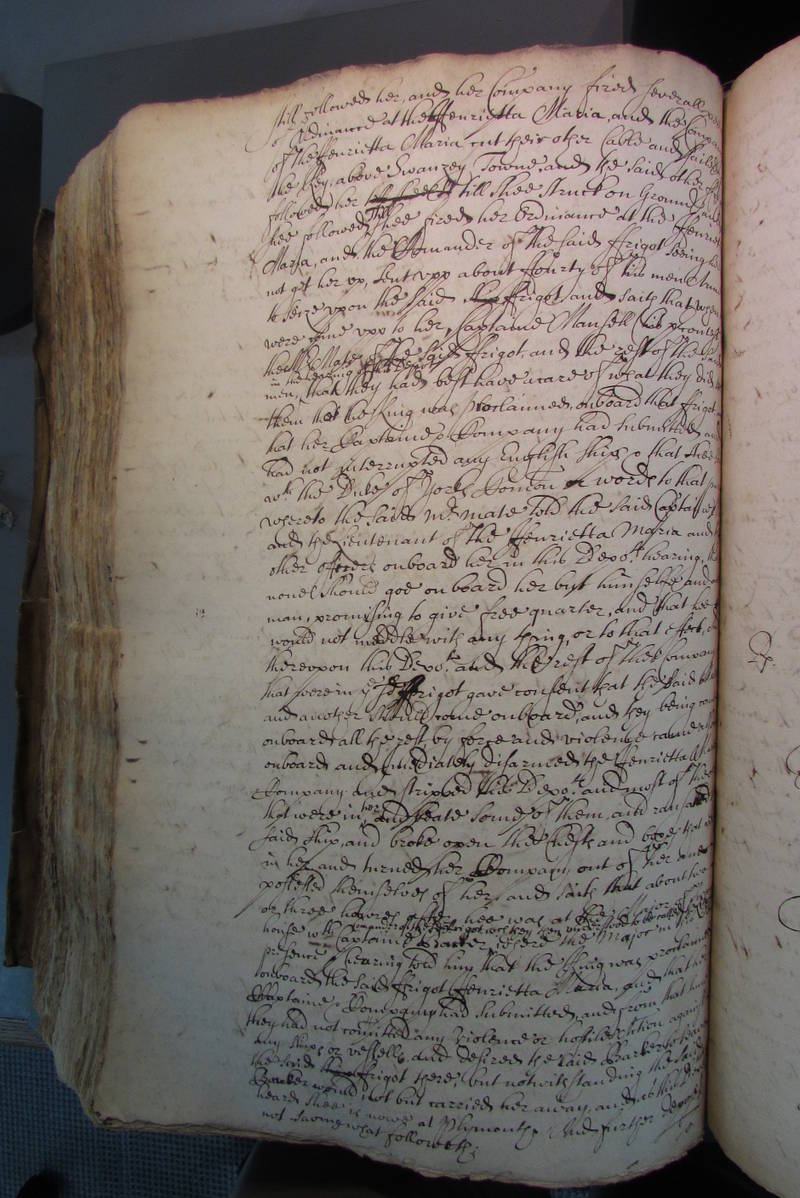 still followed her, and her Company fired severall
of Ordinance at the Henrietta Maria, and the Compa
of the Henrietta Maria cut their other Cable and sailed
the Key, above Swanzey Towne, and the said other
followed her till shee struck on Ground, and
hee followed shee fired her Ordinance at the Henriet
Maria, and the Comander of the said ffrigot seeing he
not get her up, sent upp about ffourty of his men
to seize upon the said ffrigot, and saith that when
were come upp to her, Captaine Mansell
the Mr Mate of the said ffrigot, and the rest of the
in the hearing of this depot
men, that they had best have a care of what they did
them that the King was Proclaimed, onboard that ffrigot
that her Captaine & Company had submitted, and
had not interrupted any English ships, & that shee
wth the Duke of Yorks or words to that
whereto the said Mrs mate told the said Captaine
and the Lieutenant of the Henrietta Maria and
other officers onboard her in this Depots hearing,
none should goe onboard her but himselfe and
man, promising to give free quarter, and that hee
would not meddle with any thing, or to that effect,
thereupon this Depot and the rest of the Company
that were in ye sd ffrigot gave consent that the said
and another should come onboard, and they being
onboard all the rest by force and violence came
onboard and imediately disarmed the Henrietta
Company and stripped this Depot and most of
that were in her and beate some of them, and ransaked
said ship, and broke open the Chests and
in her and turned her Company out of her and
possessed themselves of her, and saith that about two
or three howres after hee was at the Majors
house wth Captaine Barker, where the Major in
presence & hearing told him that the King was proclaimed
onboard the said ffrigot Henrietta Maria, and that
Captaine & Company had submitted, and from that
they had not comitted any violence or hostile action against
any ships or vessells, and desired the said Barker to leave
the said ffrigot there, but notwithstanding the said
Barker would not but carried her away, and
heard shee is nowe at Plymouth. And further
not saving what followeth.